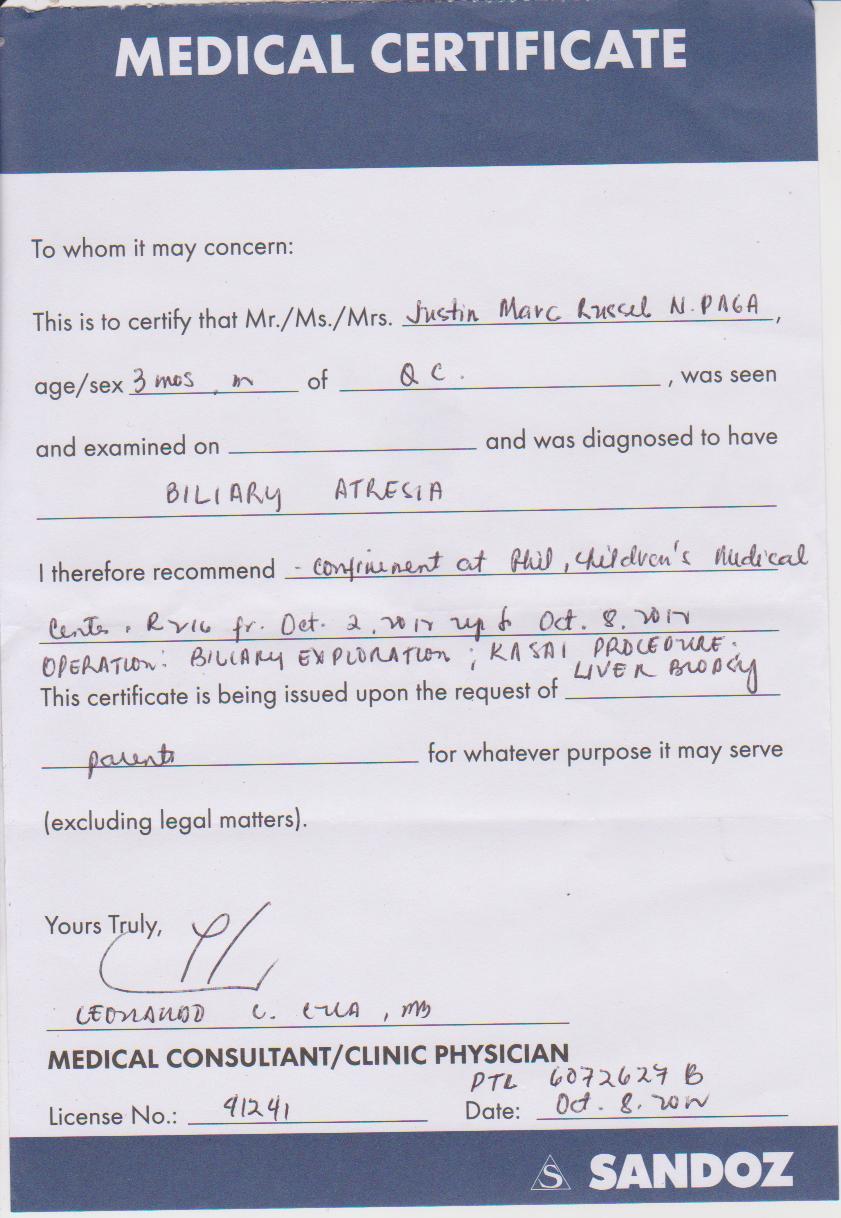 MEDICAL CERTIFICATE
To whom it may concern:
This is to certify that Mr./Ms./Mrs. Justin Marc Russel N. PAGA,
age/sex 3 mos, m of Q C. , was seen
and examined on and was diagnosed to have
BILIARY ATRESIA
I therefore recommend - confinement at Phil, Children's Medical
Center, fr. Oct. 2, 2012 up to Oct. 8, 2012
OPERATION: BILIARY EXPLORATION; KASAI PROCEDURE.
LIVER BIOPSY
This certificate is being issued upon the request of
parents for whatever purpose it may serve
(excluding legal matters).
Yours Truly,
LEONARDO C. , MD
MEDICAL CONSULTANT/CLINIC PHYSICIAN
PTR 6072627 B
License No.: 41241 Date: Oct. 8, 2012
S SANDOZ